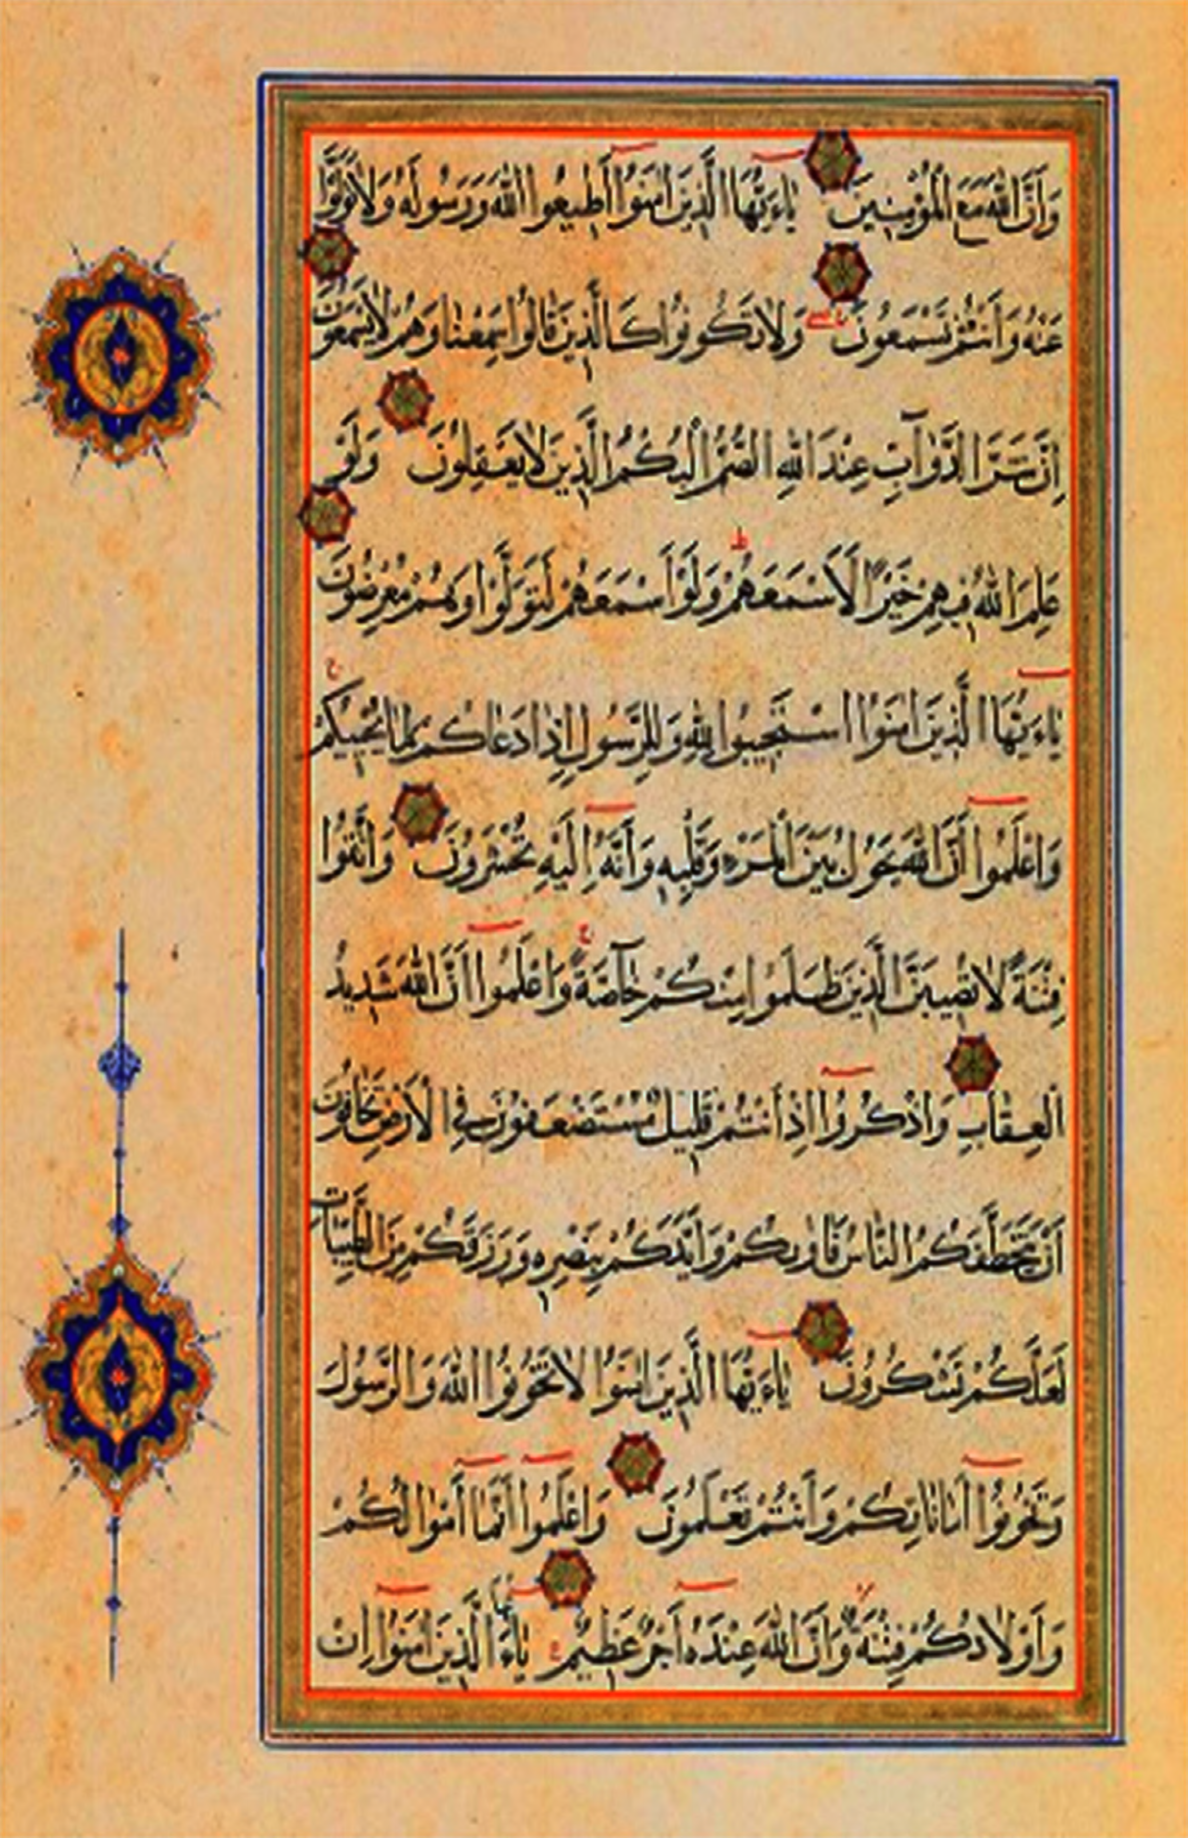 وَاَنَّ اللّٰهَ مَعَ الْمُؤْمِنِينَ يٰاءَيُّهَا الَّذِينَ اٰمَنُوا اَطِيعُوا اللّٰهَ وَرَسُولَهُ وَلَا تَوَلَّوْا
عَنْهُ وَاَنْتُمْ تَسْمَعُونَ وَلَا تَكُونُوا كَالَّذِينَ قَالُوا سَمِعْنَا وَهُمْ لَا يَسْمَعُونَ
اِنَّ شَرَّ الدَّوَآبِّ عِنْدَ اللّٰهِ الصُّمُّ الْبُكْمُ الَّذِينَ لَا يَعْقِلُونَ وَلَوْ
عَلِمَ اللّٰهُ فِيهِمْ خَيْرًا لَاَسْمَعَهُمْ وَلَوْ اَسْمَعَهُمْ لَتَوَلَّوْا وَهُمْ مُعْرِضُونَ
يٰاءَيُّهَا الَّذِينَ اٰمَنُوا اسْتَجِيبُوا لِلّٰهِ وَلِلرَّسُولِ اِذَا دَعَاكُمْ لِمَا يُحْيِيكُمْ
وَاعْلَمُوا اَنَّ اللّٰهَ يَحُولُ بَيْنَ الْمَرْءِ وَقَلْبِهِ وَاَنَّهُ اِلَيْهِ تُحْشَرُونَ وَاتَّقُوا
فِتْنَةً لَا تُصِيبَنَّ الَّذِينَ ظَلَمُوا مِنْكُمْ خَآصَّةً وَاعْلَمُوا اَنَّ اللّٰهَ شَدِيدُ
الْعِقَابِ وَاذْكُرُوا اِذْ اَنْتُمْ قَلِيلٌ مُسْتَضْعَفُونَ فِي الْاَرْضِ تَخَافُونَ
اَنْ يَتَخَطَّفَكُمُ النَّاسُ فَاٰوٰىكُمْ وَاَيَّدَكُمْ بِنَصْرِهِ وَرَزَقَكُمْ مِنَ الطَّيِّبَاتِ
لَعَلَّكُمْ تَشْكُرُونَ يٰاءَيُّهَا الَّذِينَ اٰمَنُوا لَا تَخُونُوا اللّٰهَ وَالرَّسُولَ
وَتَخُونُوا اَمَانَاتِكُمْ وَاَنْتُمْ تَعْلَمُونَ وَاعْلَمُوا اَنَّمَا اَمْوَالُكُمْ
وَاَوْلَادُكُمْ فِتْنَةٌ وَاَنَّ اللّٰهَ عِنْدَهُ اَجْرٌ عَظِيمٌ يٰاءَيُّهَا الَّذِينَ اٰمَنُوا اِنْ